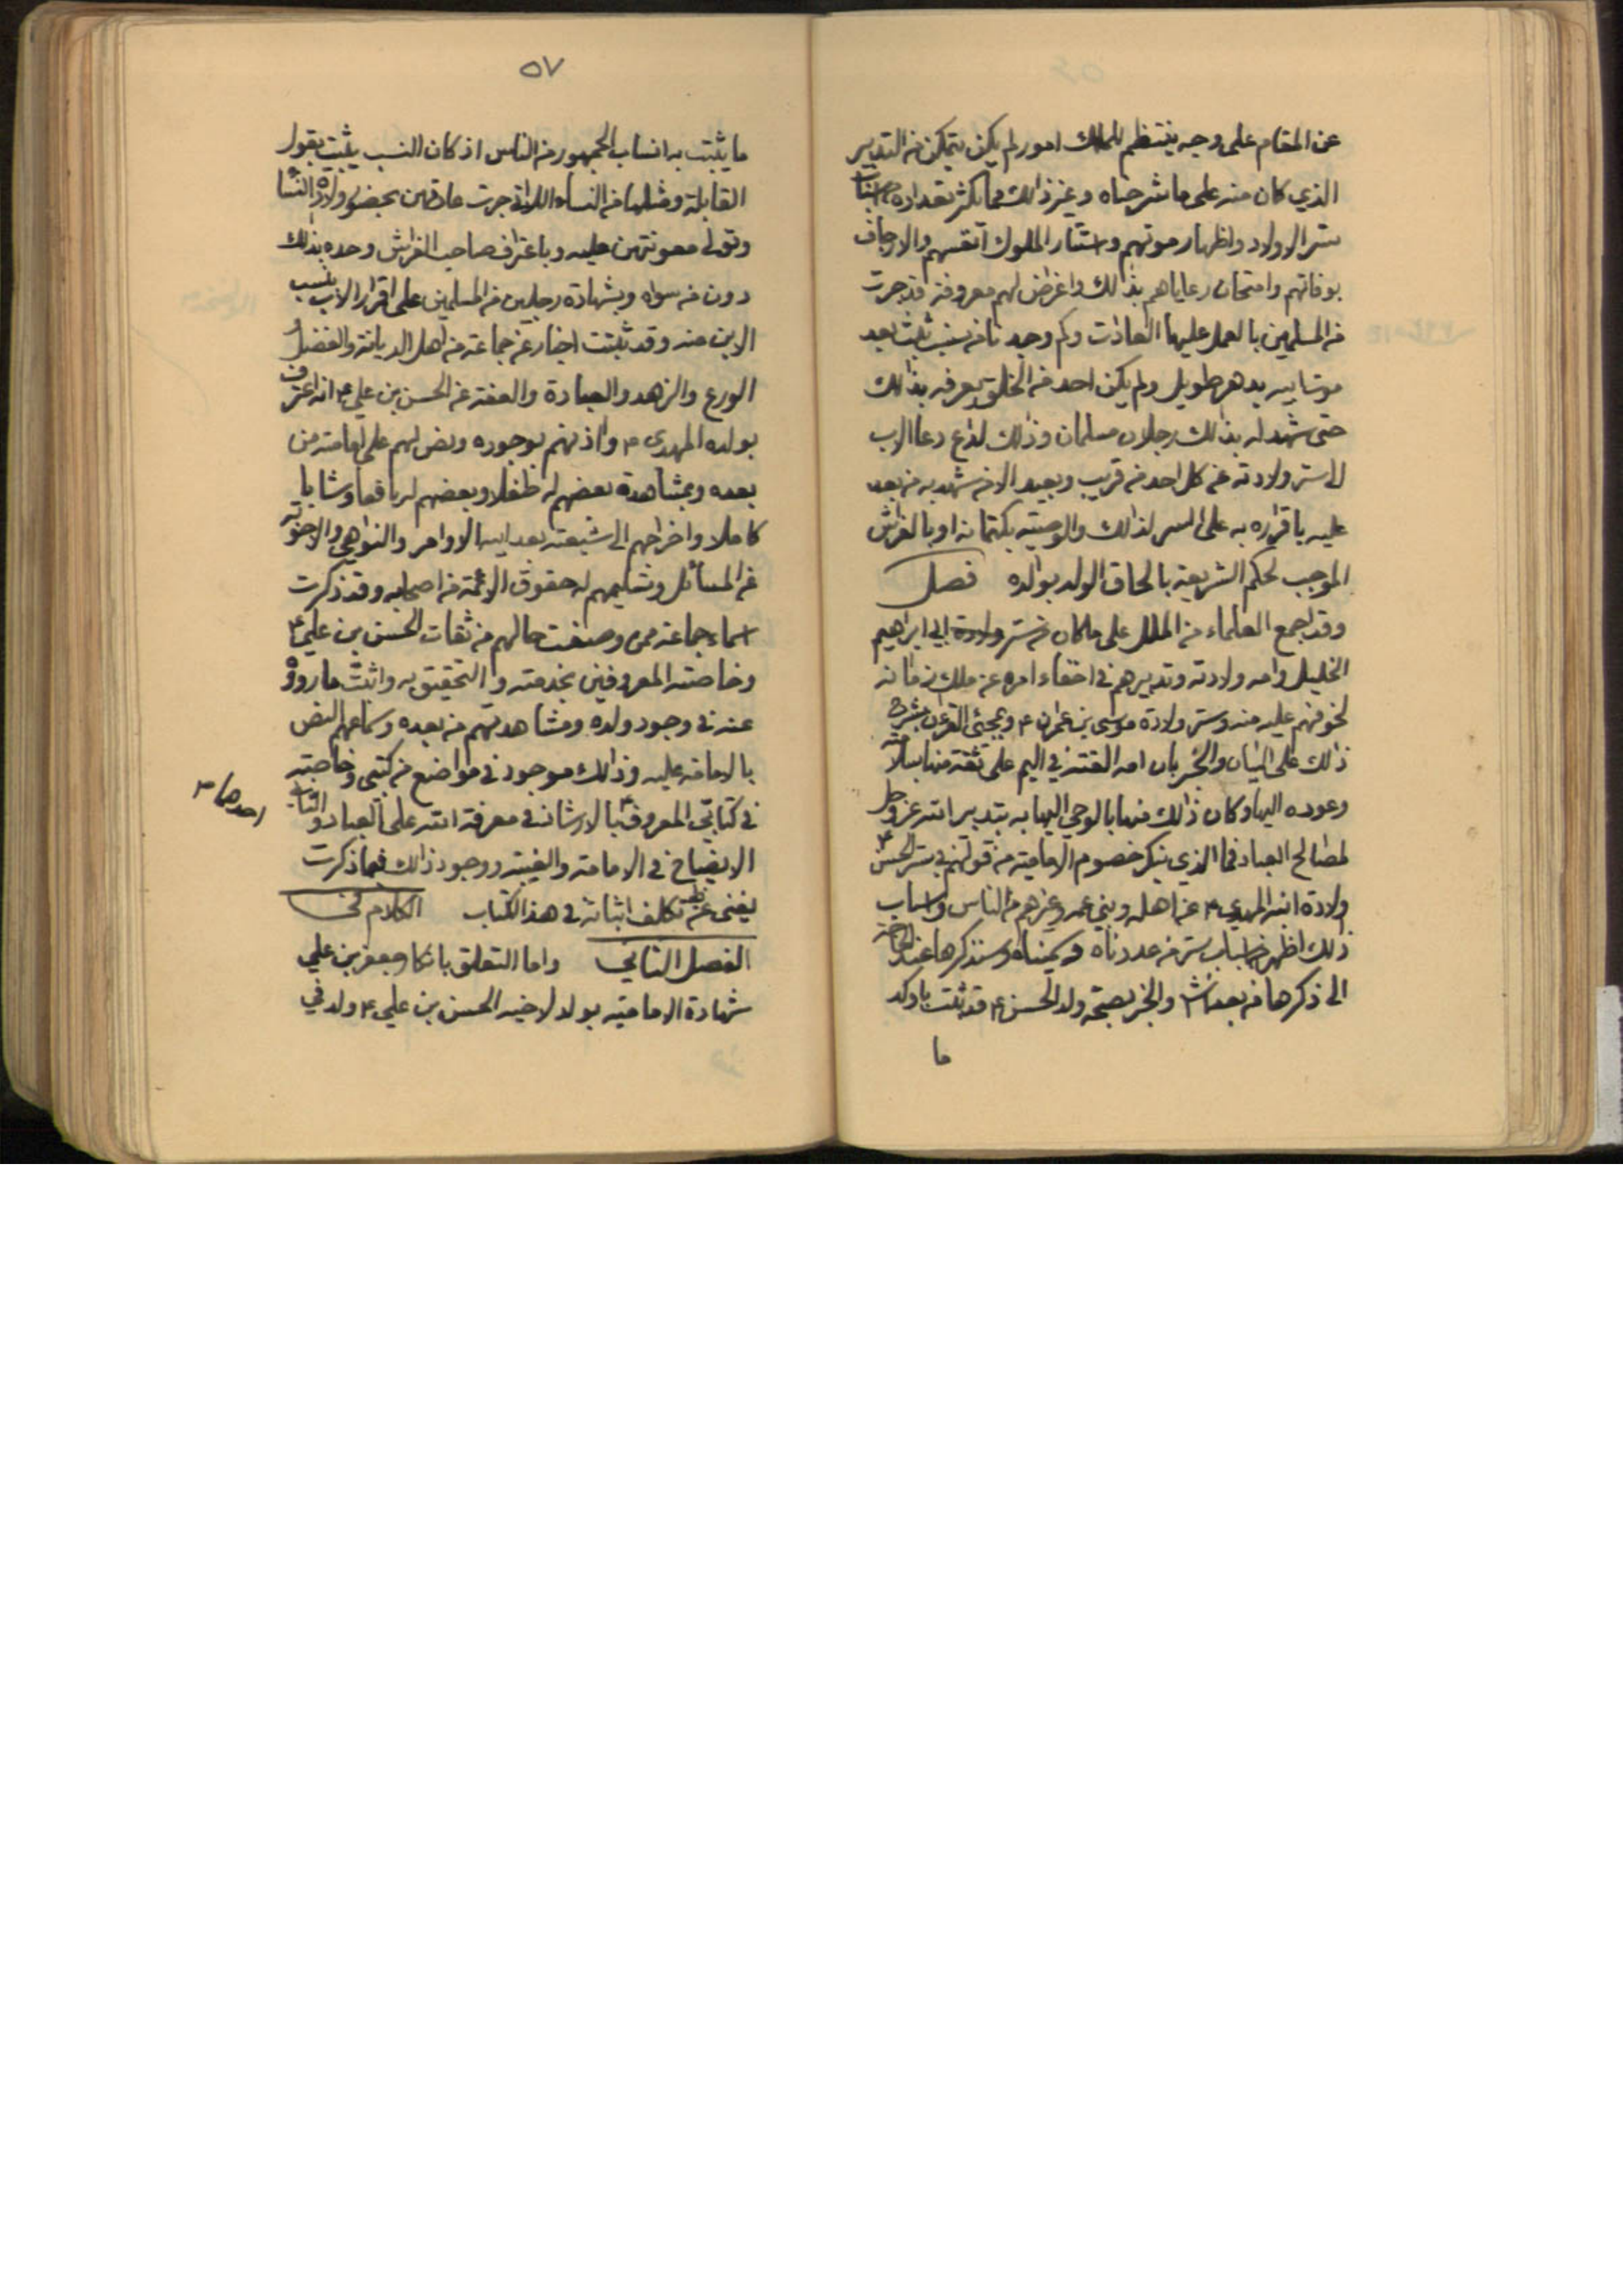 عن المقام على وجه ينتظم للملك امور لم يكن يتمكن من التدبير
الذي كان منه على ما شرحناه وغير ذالك مما يكثر تعداده من اسباب
ستر الاولاد واظهار موتهم واستتار الملوك انفسهم والارجاف
بوفاتهم وامتحان رعاياهم بذالك واغراض لهم معروفة قد جرت
من المسلمين بالعمل عليها العادات وكم وجدنا من نسيب ثبت بعد
موت ابيه بدهر طويل ولم يكن احد من الخلق يعرفه بذالك
حتى شهد له بذالك رجلان مسلمان وذالك لداع دعا الاب
الى ستر ولادته عن كل احد من قريب وبعيد الا من شهد به من بعد
عليه باقراره به على الستر لذالك والوصية بكتمانه او بالفراش
الموجب لحكم الشريعة بالحاق الولد بوالده فصل
وقد اجمع العلماء من الملل على ما كان من ستر ولادة ابي ابراهيم
الخليل وامه ولادته وتدبيرهم في اخفاء امره عن ملك زمانه
لخوفهم عليه منه وستر ولادة موسى بن عمران ع وبمجئ القرءان بشرح
ذلك على البيان والخبر بان امه القته في اليم على ثقة منها بسلامته
وعوده اليها وكان ذالك منها بالوحي اليها به بتدبير الله عز وجل
لمصالح العباد فما الذي ينكر خصوم الامامية من قولهم في ستر الحسن ع
ولادة ابنه المهدي ع عن اهله وبني عمه وغيرهم من الناس واسباب
ذلك اظهر من اسباب ستر من عددناه وسميناه وسنذكرها عند الحاجة
الى ذكرها من بعد انش والخبر بصحة ولد الحسن ع قد ثبت باوكد
ما
٥٧
ما يثبت به انساب الجمهور من الناس اذ كان النسب يثبت بقول
القابلة ومثلها من النساء اللاتي جرت عادتهن بحضور ولادة النساء
وتولي معونتهن عليه وباعتراف صاحب الفراش وحده بذالك
دون من سواه وبشهادة رجلين من المسلمين على اقرار الاب بنسب
الابن منه وقد ثبتت اخبار عن جماعة من اهل الديانة والفضل و
الورع والزهد والعبادة والعفة عن الحسن بن علي ع انه اعترف
بولده المهدي ع واذنهم بوجوده ونص لهم على امامته من
بعده وبمشاهدة بعضهم له طفلا وبعضهم له يافعا وشابا
كاملا واخراجهم الى شيعته بعد ابيه الاوامر والنواهي والاجوبة
عن المسائل وتسليمهم له حقوق الائمة من اصحابه وقد ذكرت
اسماء جماعة ممن وصفت حالهم من ثقات الحسن بن علي ع
وخاصته المعروفين بخدمته والتحقيق به واثبت ما رووه
عنه في وجود ولده ومشاهدتهم من بعده وسماعهم النص
بالامامة عليه وذالك موجود في مواضع من كتبي وخاصة
في كتابي المعروف بالارشاد في معرفة الله على العباد والثاني
احدهما ٢
الايضاح في الامامة والغيبة ووجود ذالك فيما ذكرت
يغني عن تكلف اثباته في هذ الكتاب الكلام في
الفصل الثاني واما التعلق بانكار جعفر بن علي
شهادة الامامية بولد لاخيه الحسن بن علي ع ولد في